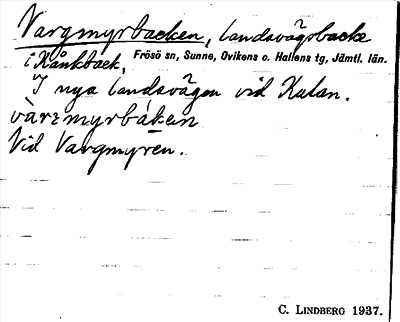 Vargmyrbacken, landsvägsbacke
i Kånkback, Frösö sn, Sunne, Ovikens o. Hallens tg, Jämtl. län.
I nya landsvägen vid Kulan.
vàrgmyrbáken
Vid Vargmyren.
C. LINDBERG 1937.